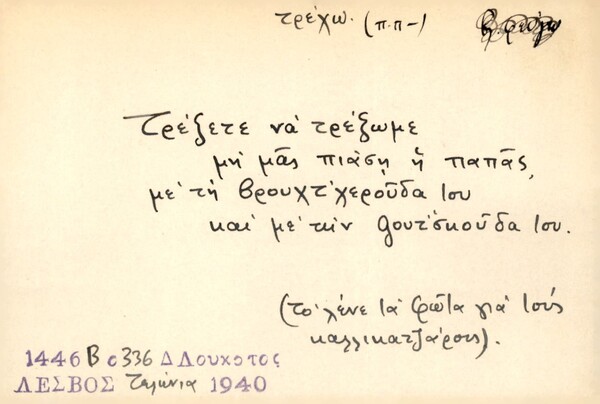 τρέχω. (π.π-)
Τρέξετε νὰ τρέξωμε
μὴ μᾶς πιάσῃ ἡ παπᾶς,
μὲ τὴ βρουχτ'χεροῦδα του
καὶ μὲ τὴν θουτ'σκοῦδα του.
(τὸ λένε τὰ Φῶτα γιὰ τοὺς
καλλικατζάρους).
1446 Β σ 336 Δ Λουκατος
ΛΕΣΒΟΣ Τελώνια 1940